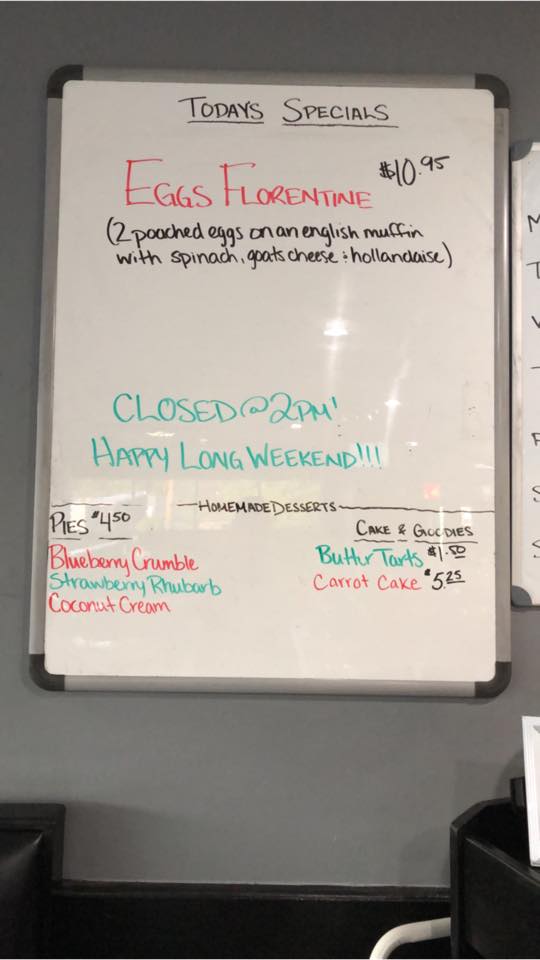 TODAYS SPECIALS
EGGS FLORENTINE $10.95
(2 poached eggs on an english muffin
with spinach, goats cheese & hollandaise)
CLOSED @ 2PM!
HAPPY LONG WEEKEND!!!
HOMEMADE DESSERTS
PIES $4.50
Blueberry Crumble
Strawberry Rhubarb
Coconut Cream
CAKE & GOODIES
Butter Tarts $1.50
Carrot Cake $5.25